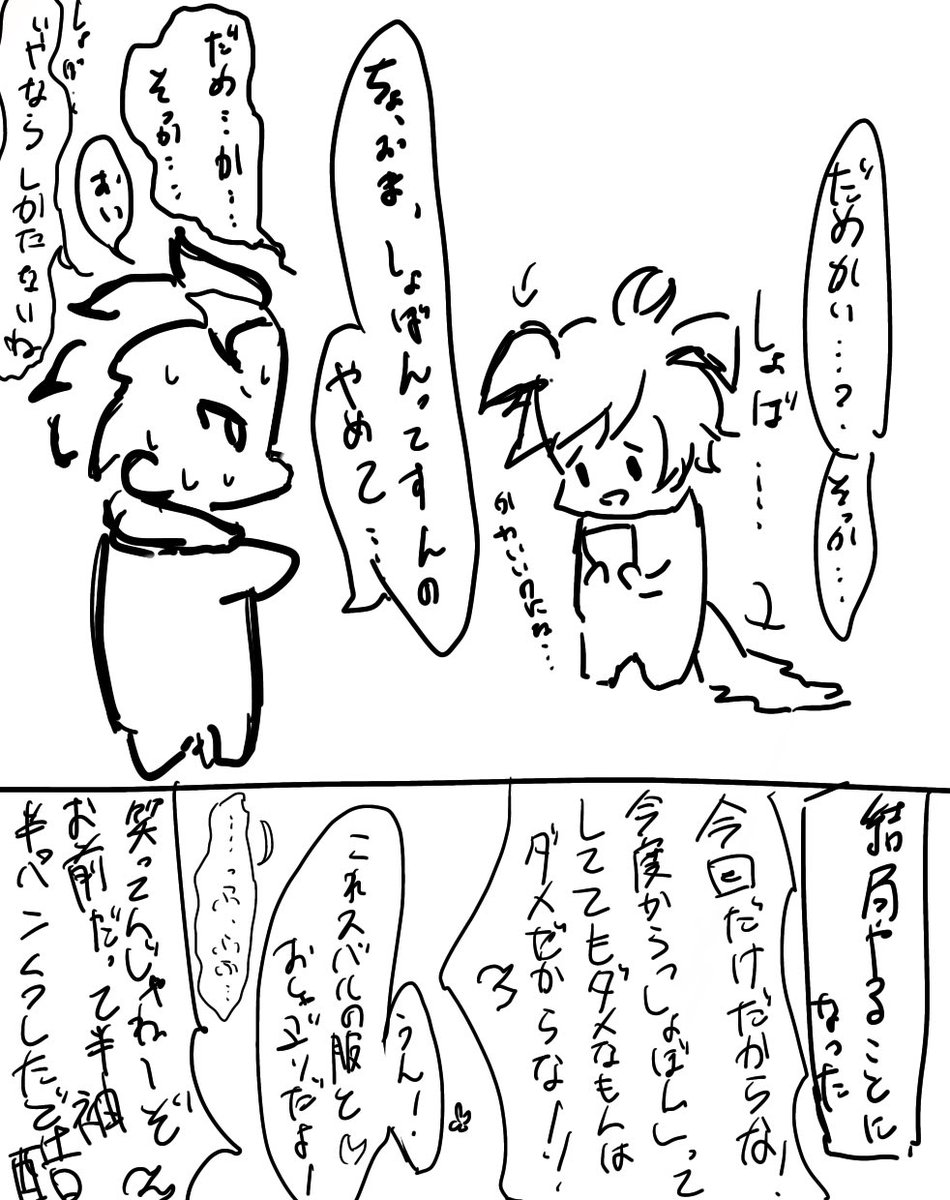 だめかい……?
そっか…
しょぼ……
かわいいのにね…
ちょ、おま、しょぼんってすんの
やめて…
だめ…か…
そっか…
おい
しょぼ…
いやなら しかたないね
結局やることに
なった
今回だけだからな!
今度からっしょぼんしって
しててもダメなもんは
ダメだからな!!
うん!
これスバルの服と
おソロだよー
……っふ、ふふ…
笑ってんじゃねーぞ
お前だって半袖